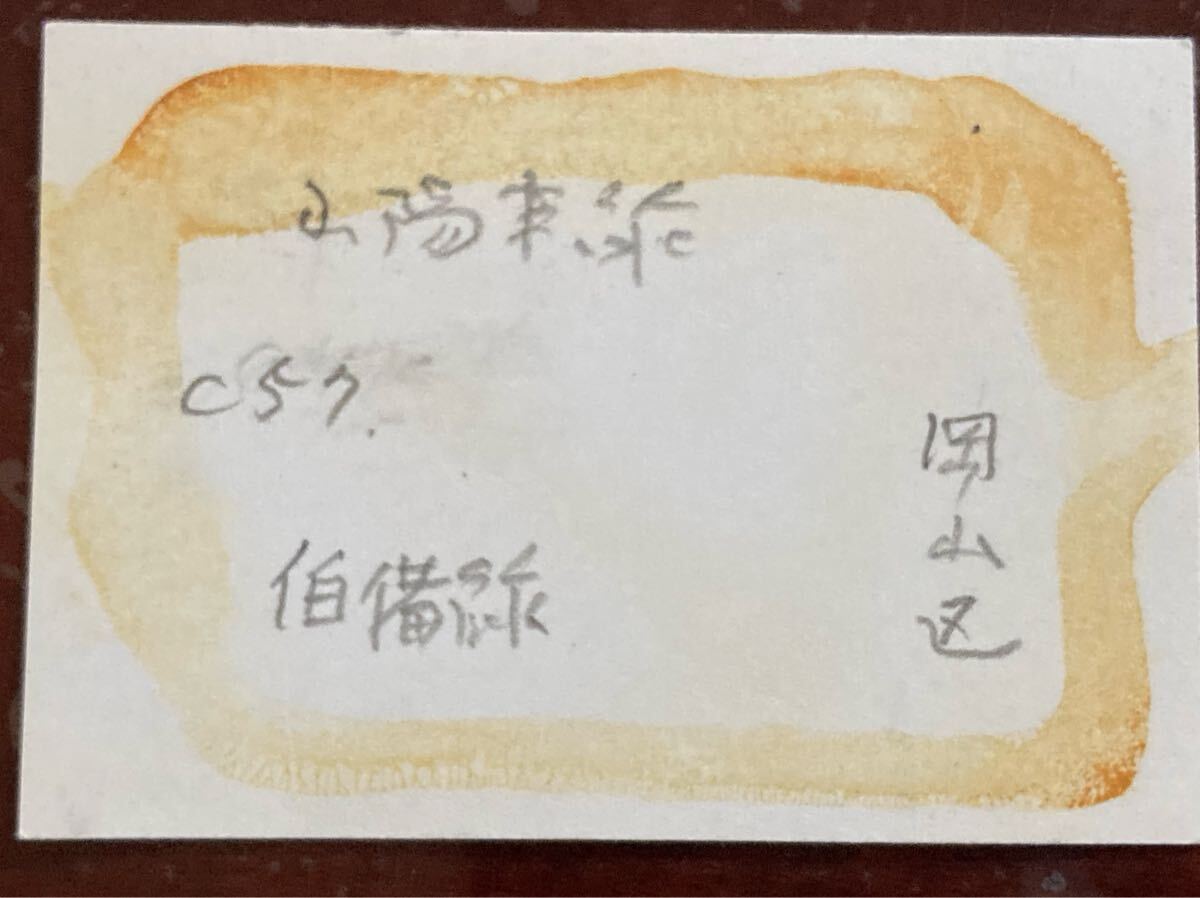 山陽本線
C57.
伯備線
岡山区